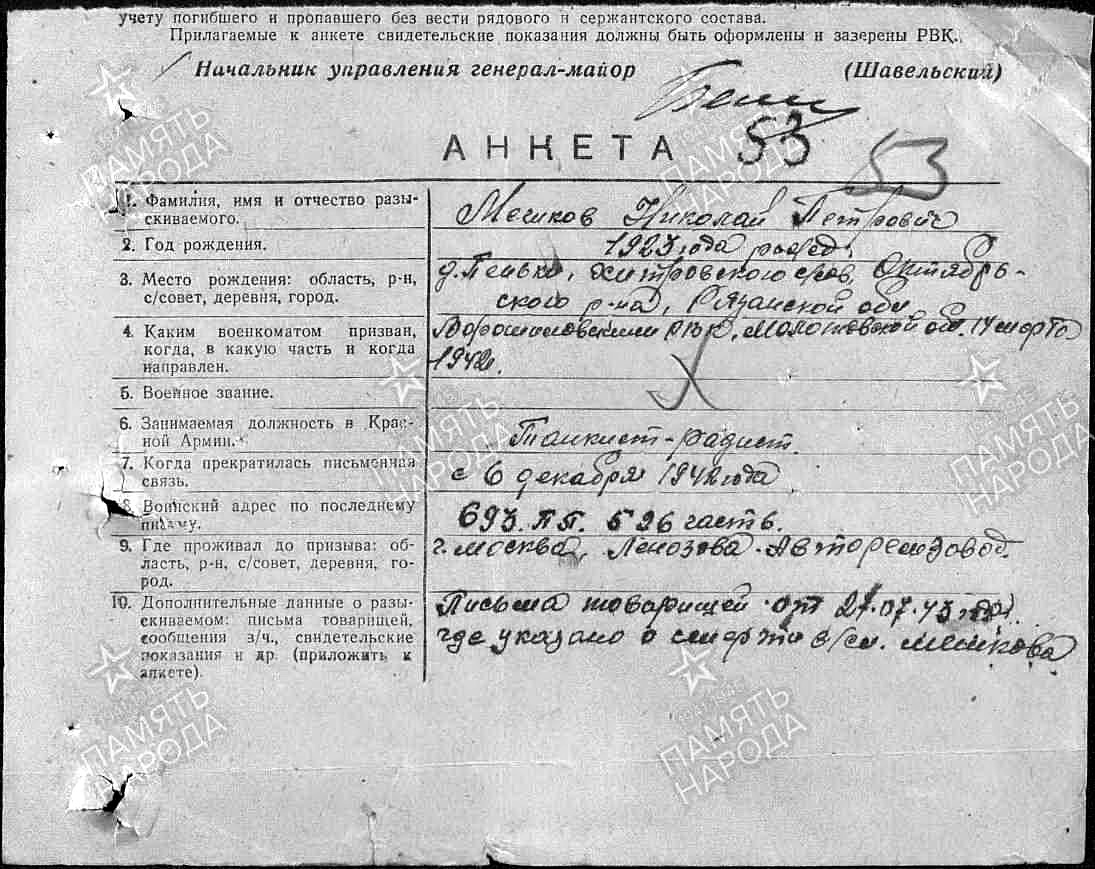 учету погибшего и пропавшего без вести рядового и сержантского состава.
Прилагаемые к анкете свидетельские показания должны быть оформлены и заверены РВК.
Начальник управления генерал-майор (Шавельский)
АНКЕТА 53 53
1. Фамилия, имя и отчество разы-
скиваемого.
Мешков Николай Петрович
2. Год рождения.
1923 года рожд.
3. Место рождения: область, р-н,
с/совет, деревня, город.
д. Пенько, Хитровского с/сов, Октябрь-
ского р-на, Рязанской обл.
4. Каким военкоматом призван,
когда, в какую часть и когда
направлен.
Ворошиловским РВК. Молотовской обл. 14 марта
1942г.
5. Военное звание.
6. Занимаемая должность в Крас-
ной Армии.
Танкист-радист.
7. Когда прекратилась письменная
связь.
с 6 декабря 1942 года
8. Воинский адрес по последнему
письму.
693. ПП. 526 часть.
9. Где проживал до призыва: об-
ласть, р-н, с/совет, деревня, го-
род.
г. Москва,
10. Дополнительные данные о разы-
скиваемом: письма товарищей,
сообщения в/ч., свидетельские
показания и др. (приложить к
анкете).
Письма товарищей от 27.07.43 года
где указано о смерти в/сл. Мешкова
ПАМЯТЬ
НАРОДА
ПАМЯТЬ
НАРОДА
ПАМЯТЬ
НАРОДА
ПАМЯТЬ
НАРОДА
ПАМЯТЬ
НАРОДА
ПАМЯТЬ
НАРОДА